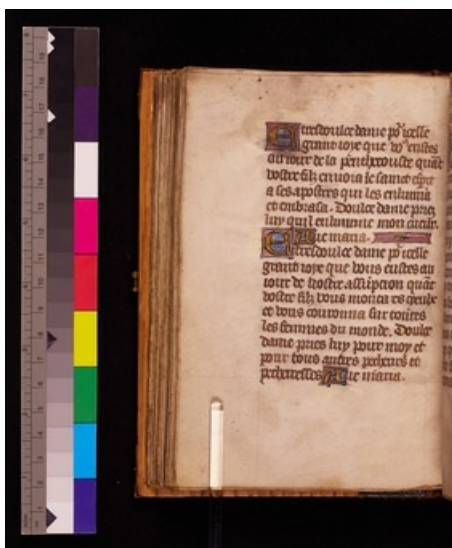 Et tresdoulce dame po² icelle
grant ioye que vo⁹ eustes
au iour de la penthecouste quāt
vostre filz enuoia le saint espit
a ses apostres qui les enlumia
et enbrasa. Doulce dame priez
luy qu'il enlumine mon cueur.
Aue maria.
Et tresdoulce dame po² icelle
grant ioye que vous eustes au
iour de vostre assūption quāt
vostre filz vous monta es cieulx
et vous couronna sur toutes
les femmes du monde. Doulce
dame pries luy pour moy et
pour tous autres pecheurs et
pecheresses Aue maria.